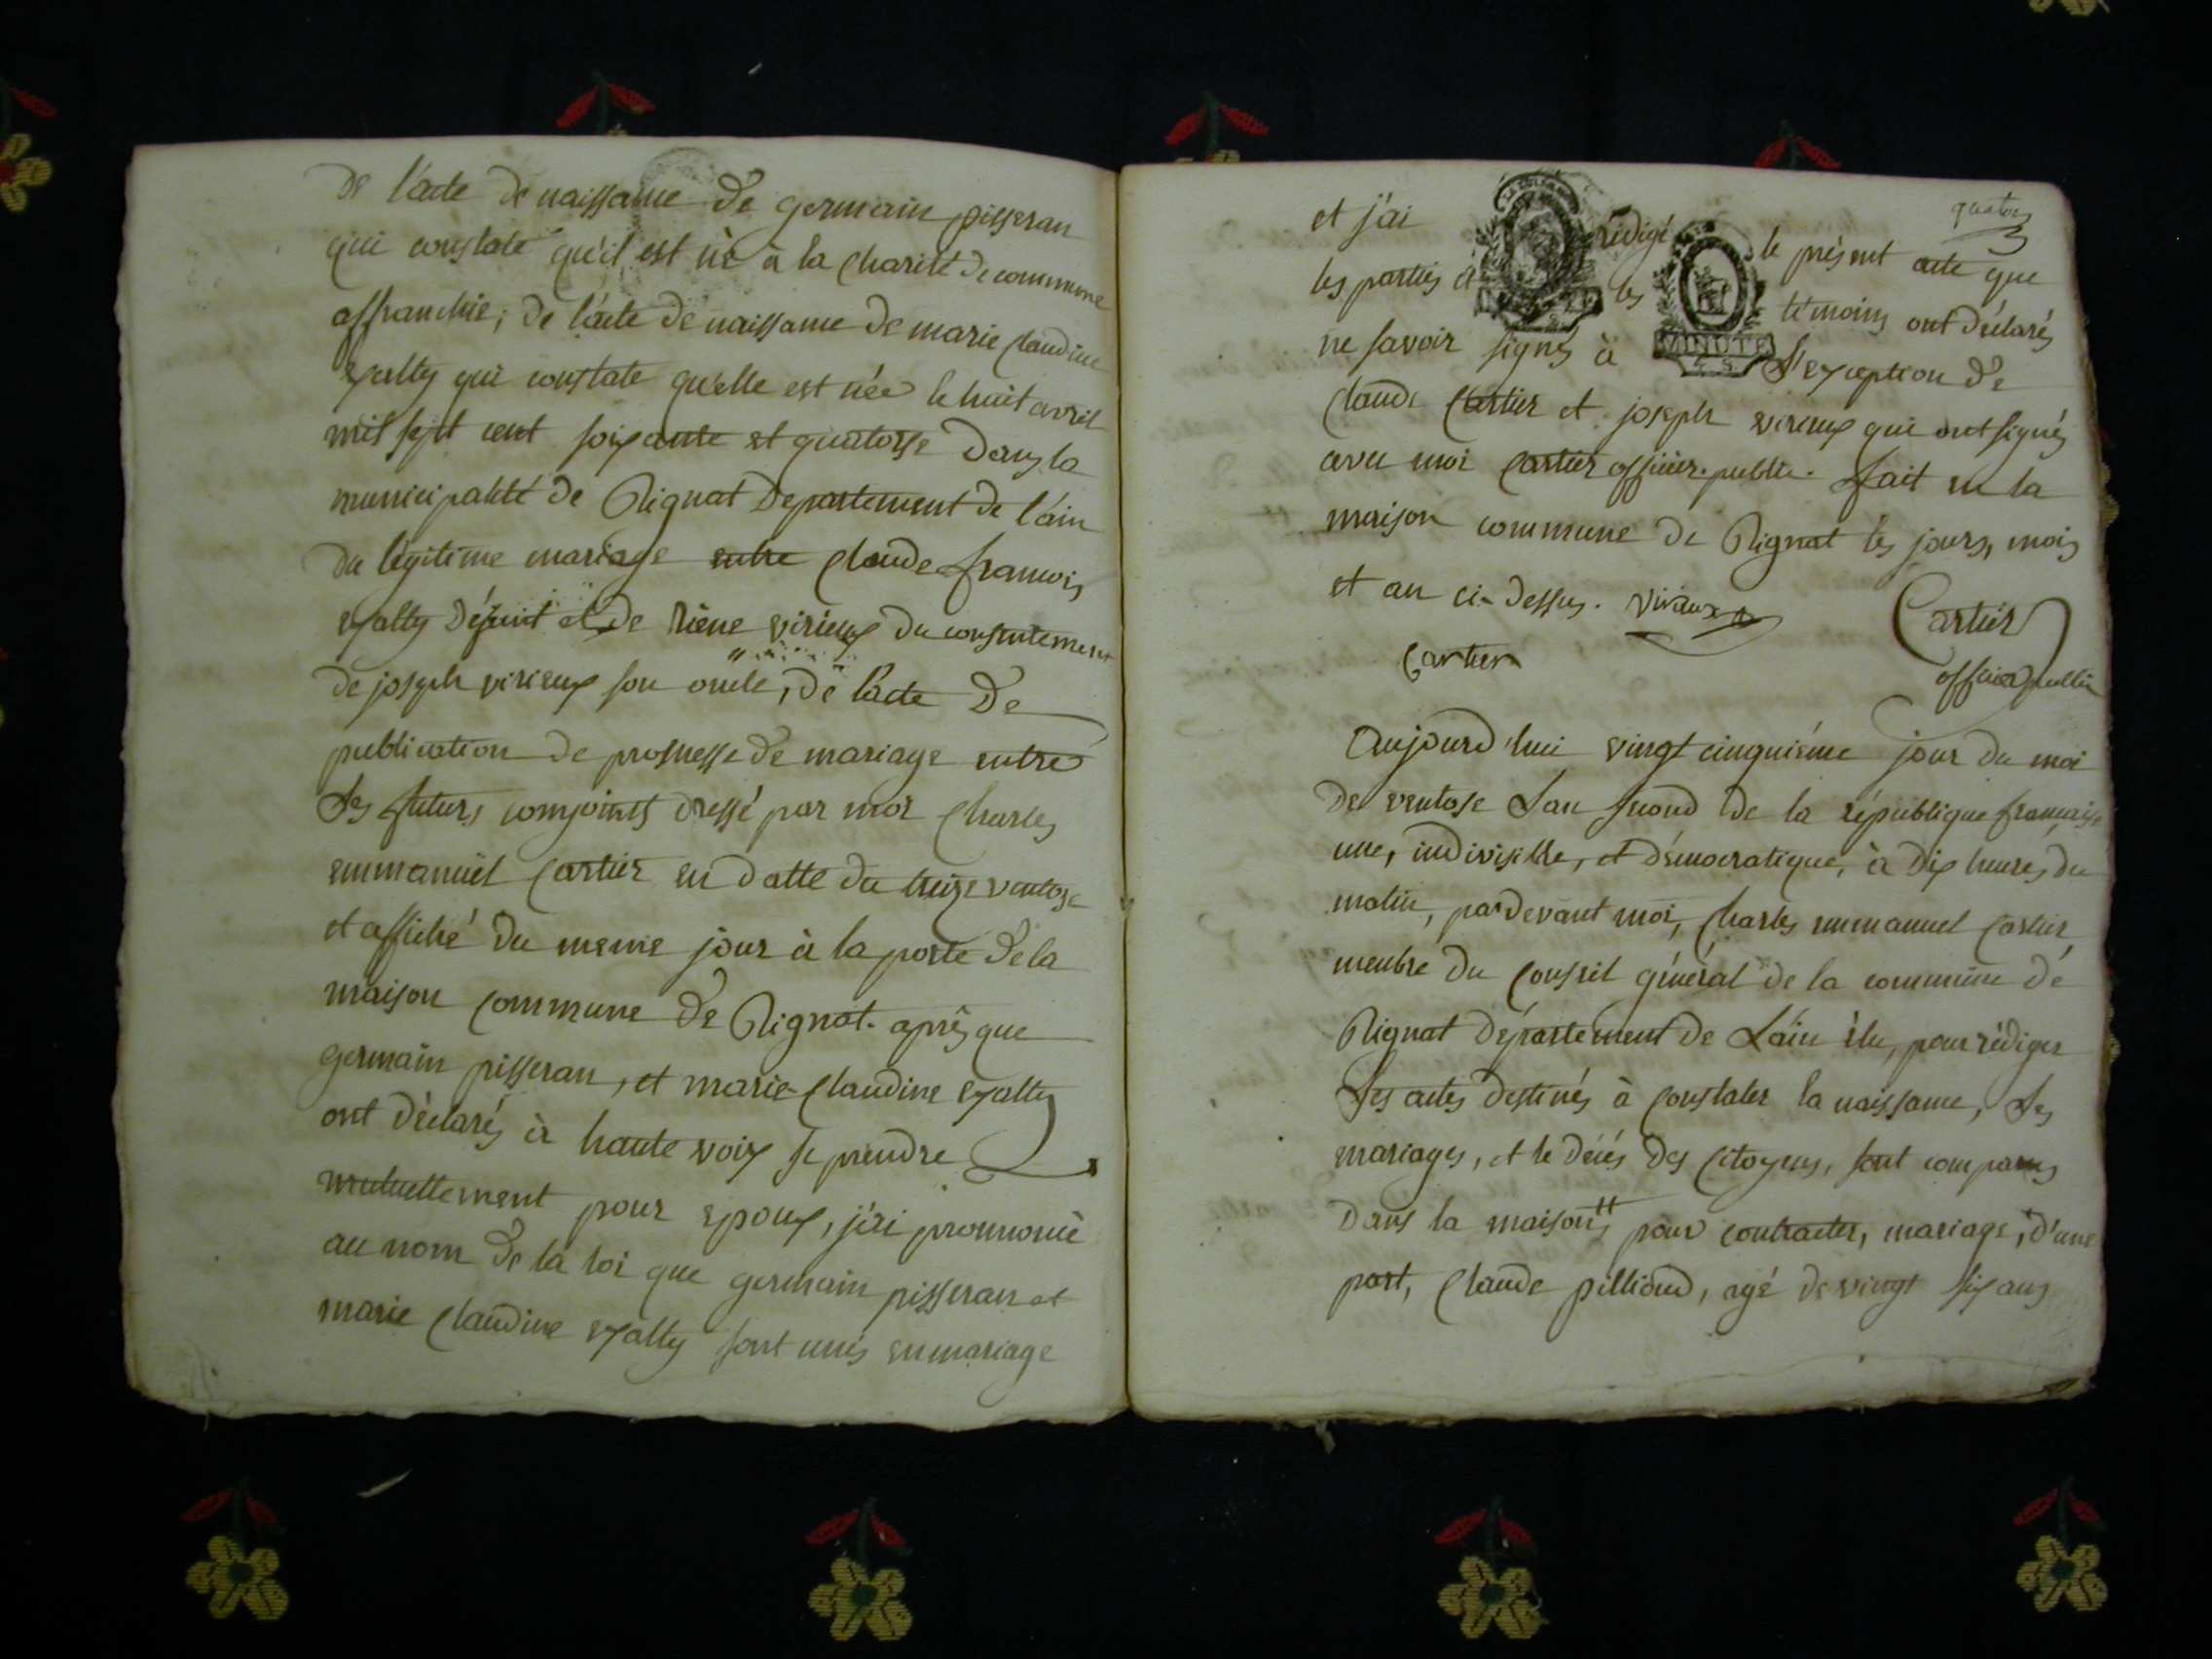 de l'acte de naissance de germain pisseran
qui constate qu'il est né à la charité de commune
affranchie; de l'acte de naissance de marie claudine
eyalty qui constate qu'elle est née le huit avril
mil sept cent soixante et quatorse dans la
municipalité de Rignat Departement de l'ain
du légitime mariage entre Claude francois
eyalty défunt et de virieux du consentement
de joseph virieux son oncle, de l'acte de
publication de promesse de mariage entre
les futurs comjoints dressé par moi Charles
emmanuel Cartier en datte du treize ventose
et affiché du meme jour à la porte de la
maison commune de Rignat. après que
germain pisseran, et marie Claudine eyalty
ont déclarés à haute voix se prendre
mutuellement pour epoux, j'ai prononcé
au nom de la loi que germain pisseran et
marie Claudine eyalty sont unis en mariage
quatorz
et j'ai rédigé le présent acte que
les parties et les témoins ont déclarés
ne savoir signés à l'exception de
MINUTE
Claude Cartier et joseph virieux qui ont signés
avec moi Cartier officier public. fait en la
maison commune de Rignat les jours, mois
et an ci-dessus. viriaux Cartier
Cartier officier public
Aujourd'hui vingt cinquième jour du moi
de ventose Lan second de la république francaise
une, indivisible, et démocratique, à dix heures du
matin, pardevant moi, Charles emmanuel Cartier
menbre du Conseil général de la commune dé
Rignat département de Lain élu, pour rédiger
Les actes destinés à constater la naissance, Les
mariages, et le décés des Citoyens, sont comparus
dans la maison pour contracter, mariage, d'une
part, Claude pillioud, agé de vingt six ans